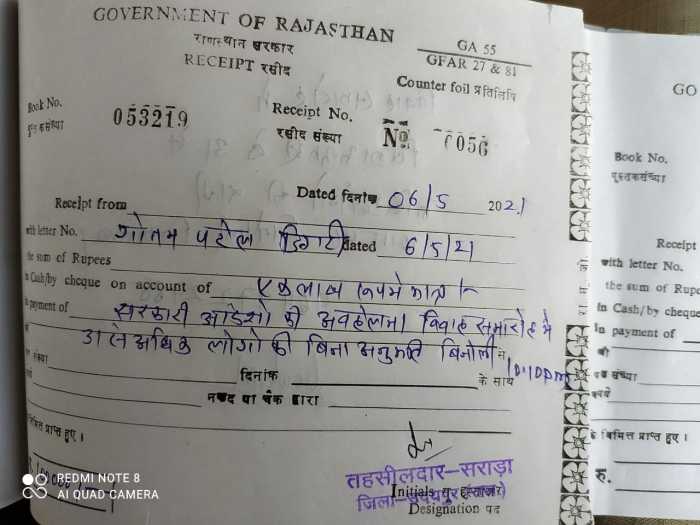 GOVERNMENT OF RAJASTHAN
राजस्थान सरकार
RECEIPT रसीद
GA 55
GFAR 27 & 81
Counter foil प्रतिलिपि
Book No. 053219
Receipt No.
रसीद संख्या No 7056
Dated दिनांक 06/5 2021
Receipt from
with letter No. गौतम पटेल डिंगरी dated 6/5/21
the sum of Rupees
in Cash/by cheque on account of एक लाख रूपये मात्र
in payment of सरकारी आदेशो की अवहेलना विवाह समारोह मे
31 से अधिक लोगो की बिना अनुमति बिनोली मे 10:10pm
संख्या दिनांक के साथ
नकद या चैक द्वारा
निमित्त प्राप्त हुए ।
तहसीलदार-सराड़ा
जिला-उदयपुर (राज.)
Initials
Designation पद
REDMI NOTE 8
AI QUAD CAMERA
GO
Book No.
पुस्तक संख्या
Receipt
with letter No.
the sum of Rupe
in Cash/by cheque
in payment of
की
पत्र संख्या
रूपये
के निमित्त प्राप्त हुए ।
रु.